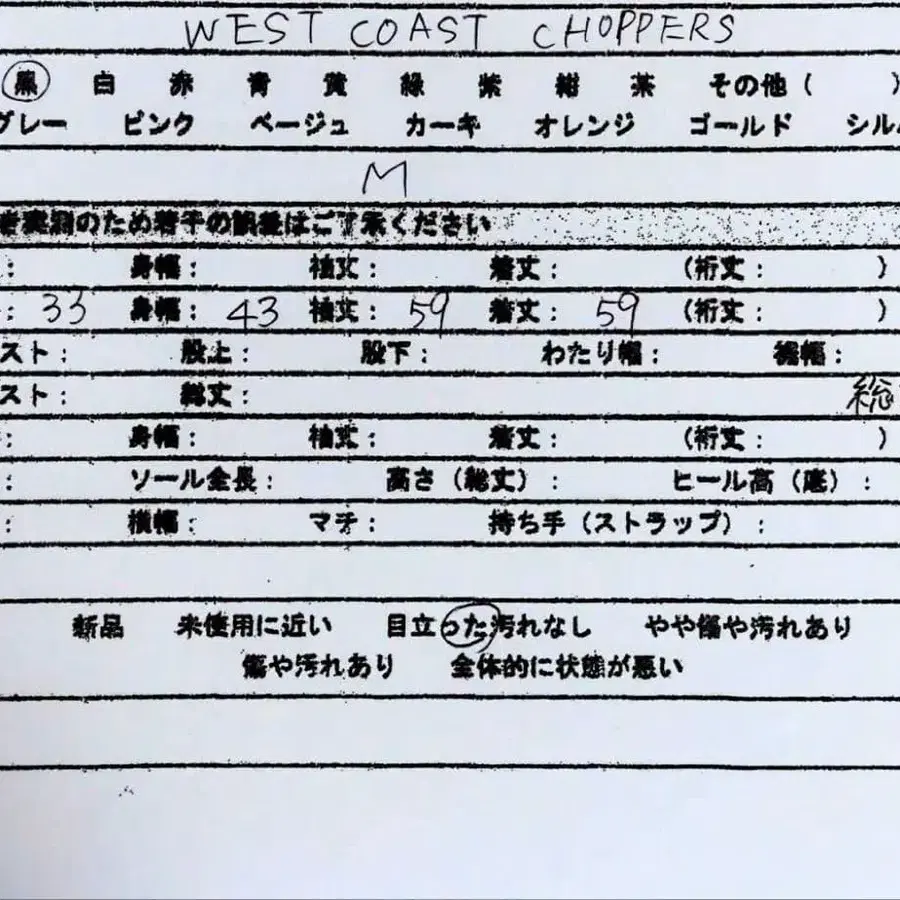 WEST COAST CHOPPERS
黒 白 赤 青 黄 緑 紫 紺 茶 その他（ ）
グレー ピンク ベージュ カーキ オレンジ ゴールド シル
M
実測のため若干の誤差はご了承ください
： 身幅： 袖丈： 着丈： （裄丈： ）
： 33 身幅： 43 袖丈： 59 着丈： 59 （裄丈： ）
スト： 股上： 股下： わたり幅： 裾幅：
スト： 総丈： 総
： 身幅： 袖丈： 着丈： （裄丈： ）
： ソール全長： 高さ（総丈）： ヒール高（底）：
： 横幅： マチ： 持ち手（ストラップ）：
新品 未使用に近い 目立った汚れなし やや傷や汚れあり
傷や汚れあり 全体的に状態が悪い